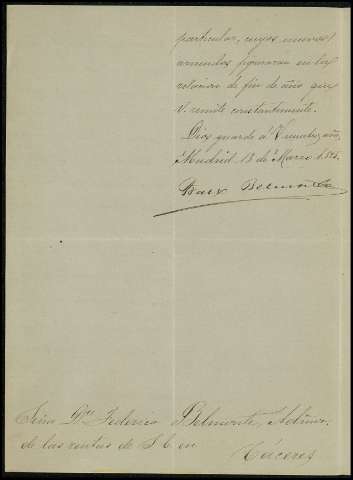 particular, cuyos nuevos
arriendos figuraran en la
relacion de fin de año que
V. remite constantemente.
Dios guarde á V. muchos años.
Madrid 18 de Marzo
Belmonte
Señor Dn. Federico Belmonte, Admor.
de las rentas de S. E. en
Cáceres